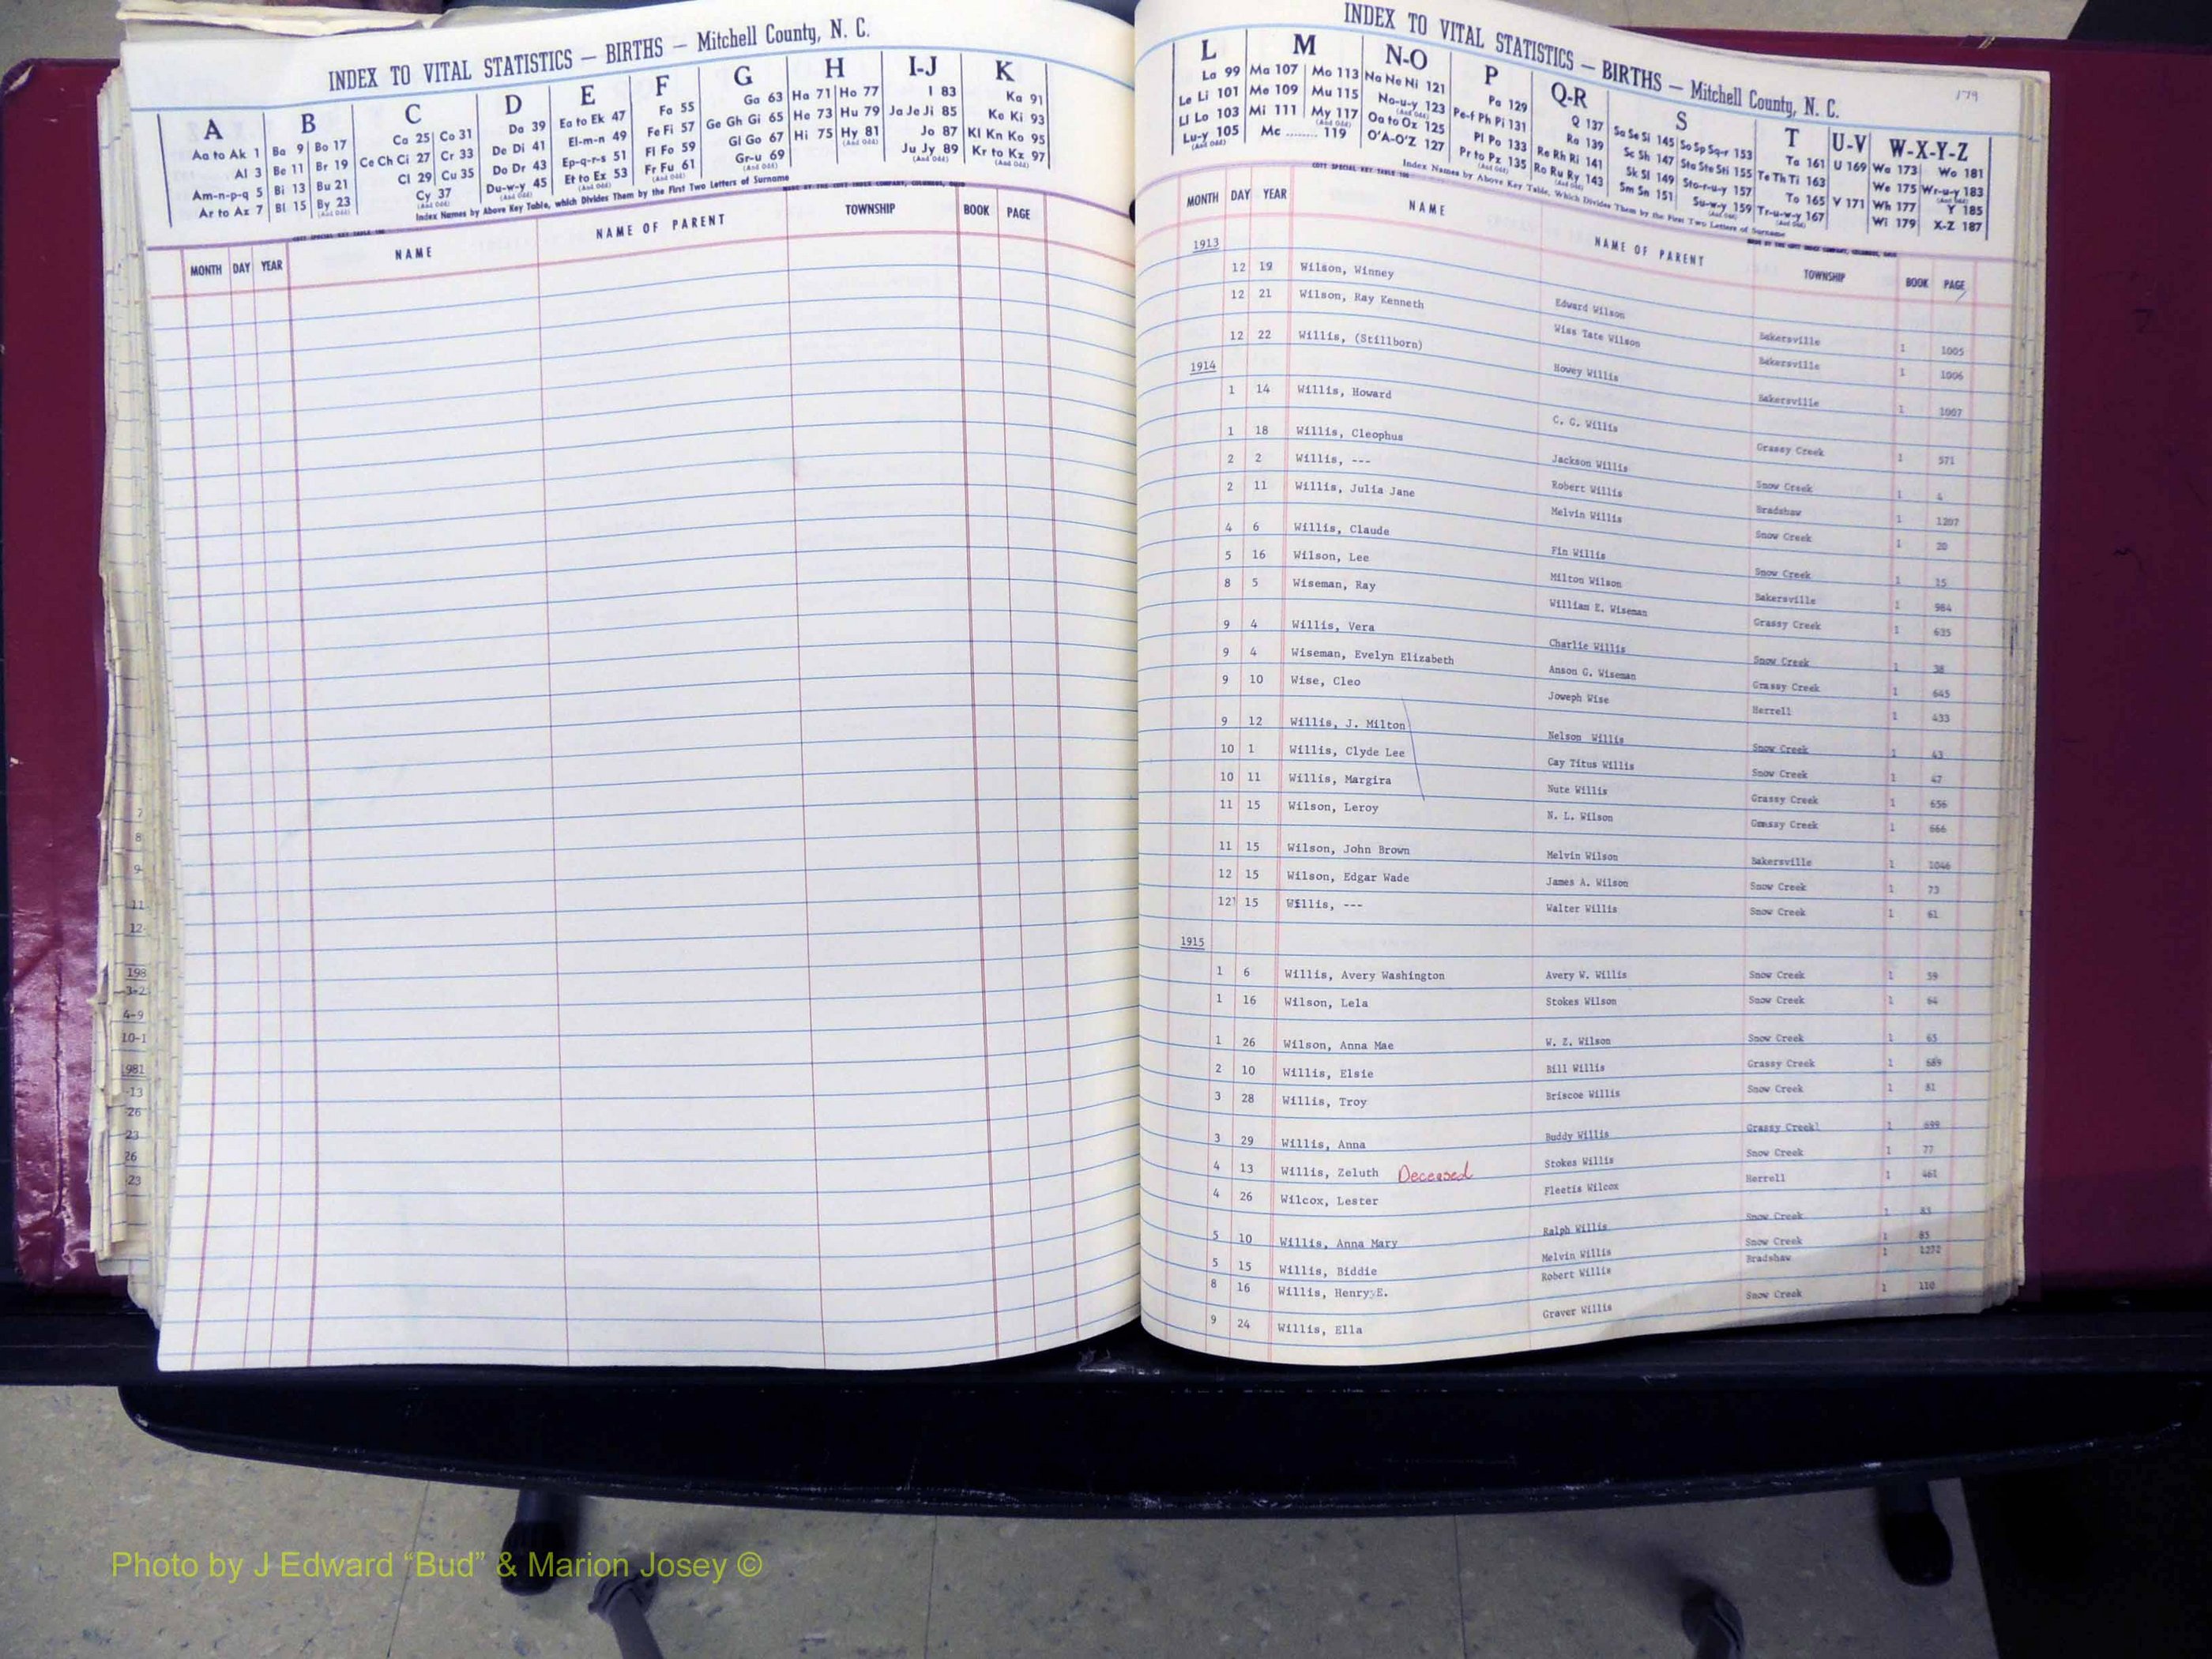 INDEX TO VITAL STATISTICS — BIRTHS — Mitchell County, N. C.
A B C D E F G H I-J K
Aa to Ak 1 Ba 9 Bo 17 Ca 25 Co 31 Da 39 Ea to Ek 47 Fa 55 Ga 63 Ha 71 Ho 77 I 83 Ka 91
Al 3 Be 11 Br 19 Ce Ch Ci 27 Cr 33 De Di 41 El-m-n 49 Fe Fi 57 Ge Gh Gi 65 He 73 Hu 79 Ja Je Ji 85 Ke Ki 93
Am-n-p-q 5 Bi 13 Bu 21 Cl 29 Cu 35 Do Dr 43 Ep-q-r-s 51 Fl Fo 59 Gl Go 67 Hi 75 Hy 81 Jo 87 Kl Kn Ko 95
Ar to Az 7 Bl 15 By 23 Cy 37 Du-w-y 45 Et to Ex 53 Fr Fu 61 Gr-u 69 Ju Jy 89 Kr to Kz 97
Index Names by Above Key Table, which Divides Them by the First Two Letters of Surname
MONTH DAY YEAR NAME NAME OF PARENT TOWNSHIP BOOK PAGE
7
8
9-
11
12-
198
-3-2
4-9
10-1
1981
-13
-26
23
26
-23
INDEX TO VITAL STATISTICS — BIRTHS — Mitchell County, N. C.
179
L M N-O P Q-R S T U-V W-X-Y-Z
La 99 Ma 107 Mo 113 Na Ne Ni 121 Pa 129 Q 137 Sa Se Si 145 So Sp Sq-r 153 Ta 161 U 169 Wa 173 Wo 181
Le Li 101 Me 109 Mu 115 No-u-y 123 Pe-f Ph Pi 131 Ra 139 Sc Sh 147 Sta Ste Sti 155 Te Th Ti 163 We 175 Wr-u-y 183
Ll Lo 103 Mi 111 My 117 Oa to Oz 125 Pl Po 133 Re Rh Ri 141 Sk Sl 149 Sto-r-u-y 157 To 165 V 171 Wh 177 Y 185
Lu-y 105 Mc ........ 119 O'A-O'Z 127 Pr to Pz 135 Ro Ru Ry 143 Sm Sn 151 Su-w-y 159 Tr-u-w-y 167 Wi 179 X-Z 187
Index Names by Above Key Table, Which Divides Them by the First Two Letters of Surname
MONTH DAY YEAR NAME NAME OF PARENT TOWNSHIP BOOK PAGE
1913
12 19 Wilson, Winney Edward Wilson Bakersville 1 1005
12 21 Wilson, Ray Kenneth Wiss Tate Wilson Bakersville 1 1006
12 22 Willis, (Stillborn) Howey Willis Bakersville 1 1007
1914
1 14 Willis, Howard C. G. Willis Grassy Creek 1 571
1 18 Willis, Cleophus Jackson Willis Snow Creek 1 4
2 2 Willis, --- Robert Willis Bradshaw 1 1207
2 11 Willis, Julia Jane Melvin Willis Snow Creek 1 20
4 6 Willis, Claude Fin Willis Snow Creek 1 15
5 16 Wilson, Lee Milton Wilson Bakersville 1 984
8 5 Wiseman, Ray William E. Wiseman Grassy Creek 1 635
9 4 Willis, Vera Charlie Willis Snow Creek 1 38
9 4 Wiseman, Evelyn Elizabeth Anson G. Wiseman Grassy Creek 1 645
9 10 Wise, Cleo Joweph Wise Herrell 1 433
9 12 Willis, J. Milton Nelson Willis Snow Creek 1 43
10 1 Willis, Clyde Lee Cay Titus Willis Snow Creek 1 47
10 11 Willis, Margira Nute Willis Grassy Creek 1 656
11 15 Wilson, Leroy N. L. Wilson Grassy Creek 1 666
11 15 Wilson, John Brown Melvin Wilson Bakersville 1 1046
12 15 Wilson, Edgar Wade James A. Wilson Snow Creek 1 73
12 15 Willis, --- Walter Willis Snow Creek 1 61
1915
1 6 Willis, Avery Washington Avery W. Willis Snow Creek 1 59
1 16 Wilson, Lela Stokes Wilson Snow Creek 1 64
1 26 Wilson, Anna Mae W. Z. Wilson Snow Creek 1 65
2 10 Willis, Elsie Bill Willis Grassy Creek 1 689
3 28 Willis, Troy Briscoe Willis Snow Creek 1 81
3 29 Willis, Anna Buddy Willis Grassy Creek 1 699
4 13 Willis, Zeluth Deceased Stokes Willis Snow Creek 1 77
4 26 Wilcox, Lester Fleetis Wilcox Herrell 1 461
5 10 Willis, Anna Mary Ralph Willis Snow Creek 1 83
5 15 Willis, Biddie Melvin Willis Snow Creek 1 85
8 16 Willis, Henry E. Robert Willis Bradshaw 1 1272
9 24 Willis, Ella Graver Willis Snow Creek 1 110
Photo by J Edward “Bud” & Marion Josey ©